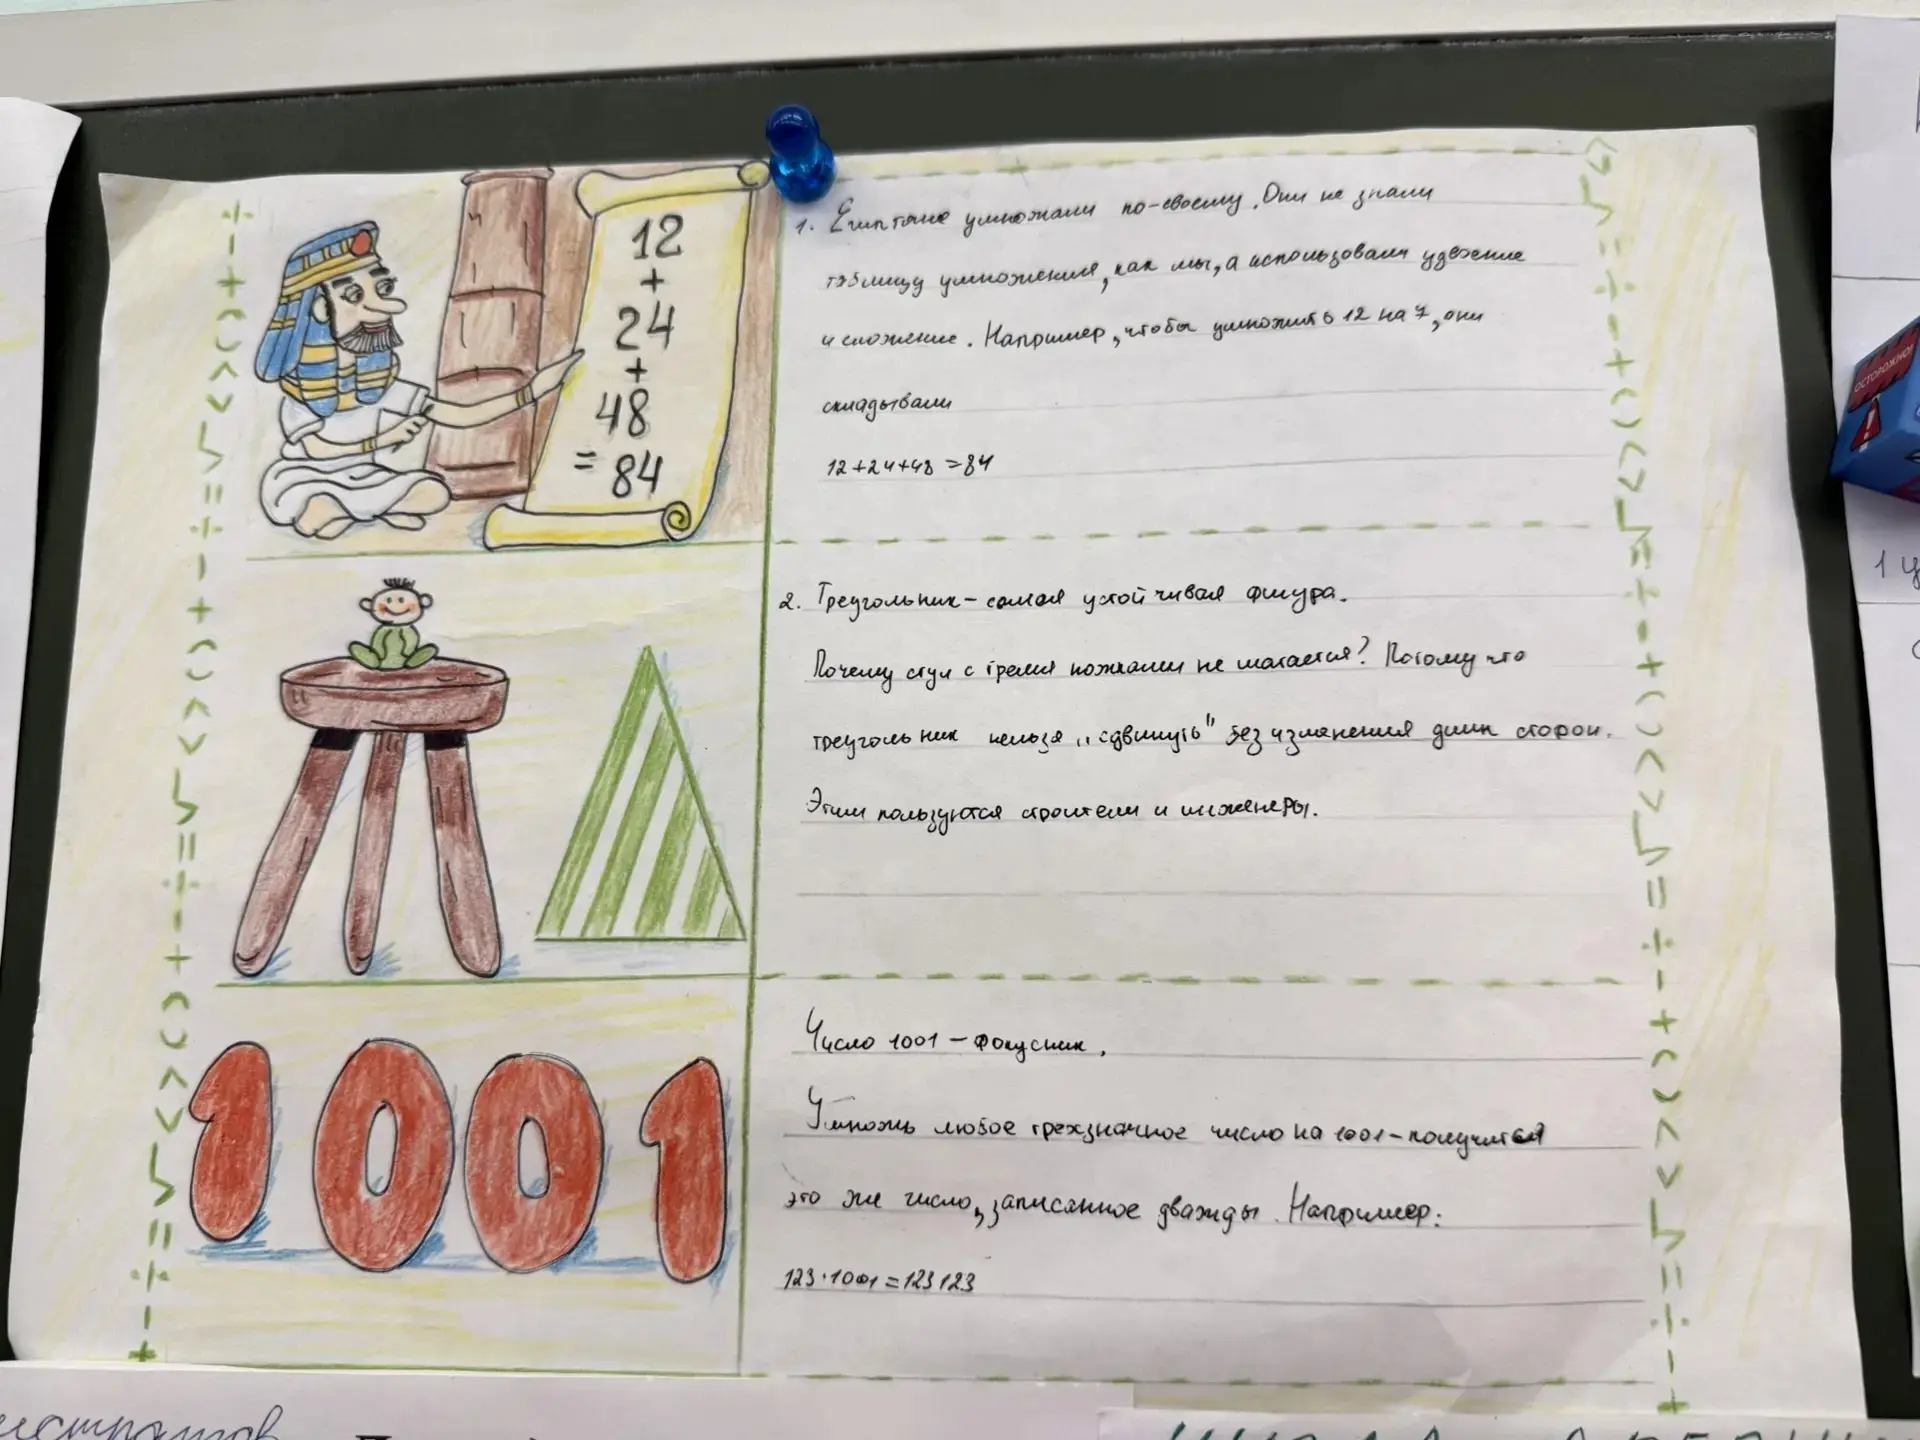 12
+
24
+
48
= 84
1. Египтяне умножали по-своему. Они не знали
таблицу умножения, как мы, а использовали удвоение
и сложение. Например, чтобы умножить 12 на 7, они
складывали
12+24+48=84
2. Треугольник - самая устойчивая фигура.
Почему стул с тремя ножками не шатается? Потому что
треугольник нельзя „сдвинуть" без изменения длин сторон.
Этим пользуются строители и инженеры.
1001
Число 1001 - фокусник.
Умножь любое трехзначное число на 1001 - получится
это же число, записанное дважды. Например:
123·1001=123123
ОСТОРОЖНО!